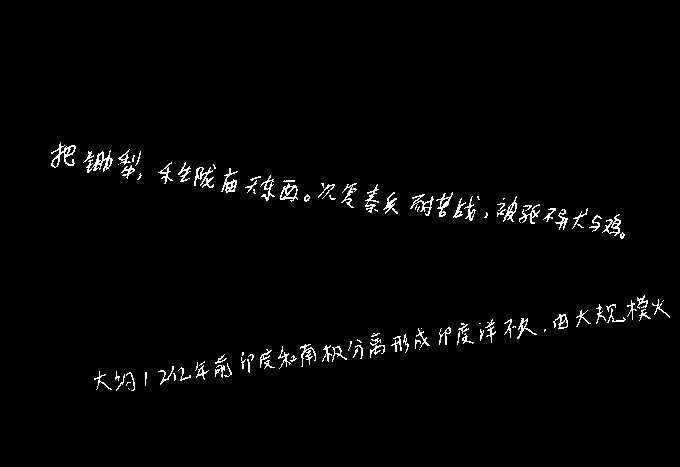 把锄犁，禾生陇亩无东西。况复秦兵耐苦战，被驱不异犬与鸡。
大约12亿年前印度和南极分离形成印度洋不久，由大规模火